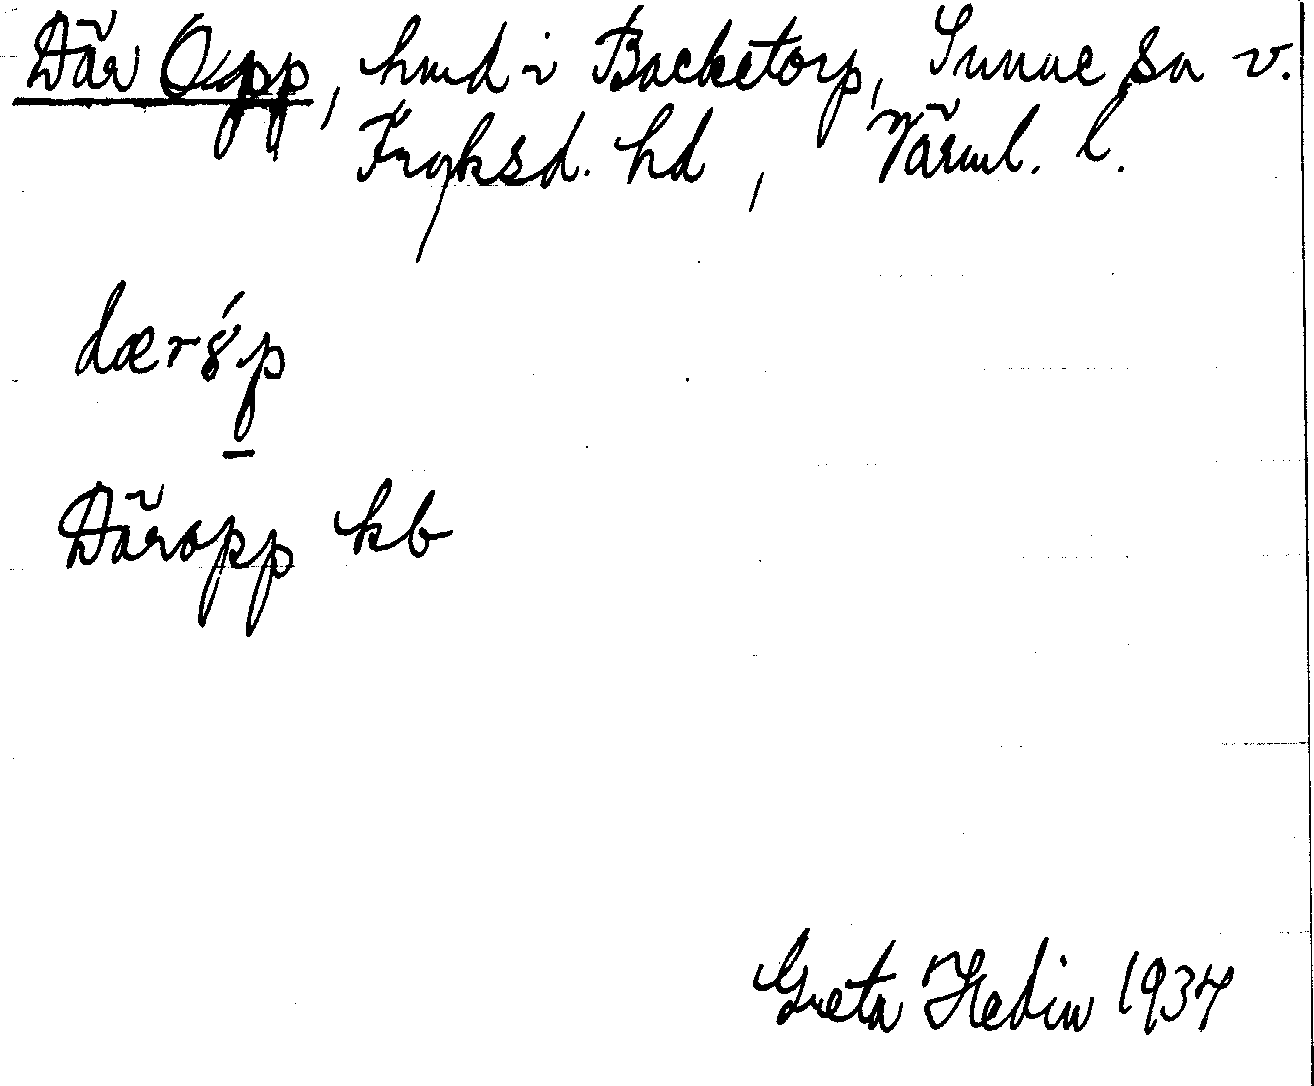 Där Opp, hmd i Backetorp, Sunne sn v.
Fryksd. hd, Värml. l.
dær
Däropp kb
Greta Hedin 1934